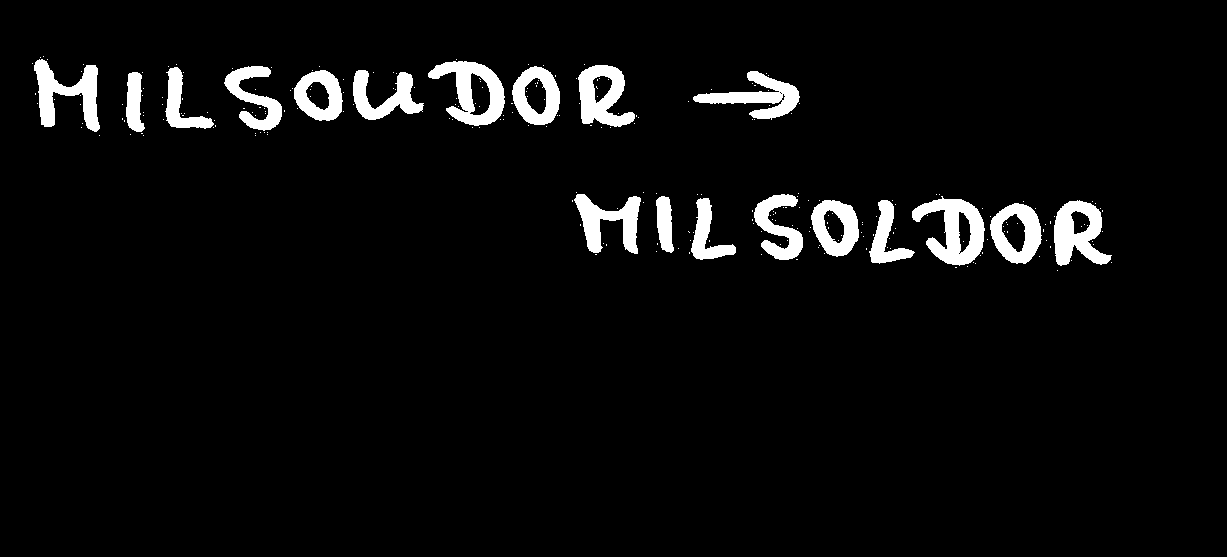 MILSOUDOR →
MILSOLDOR